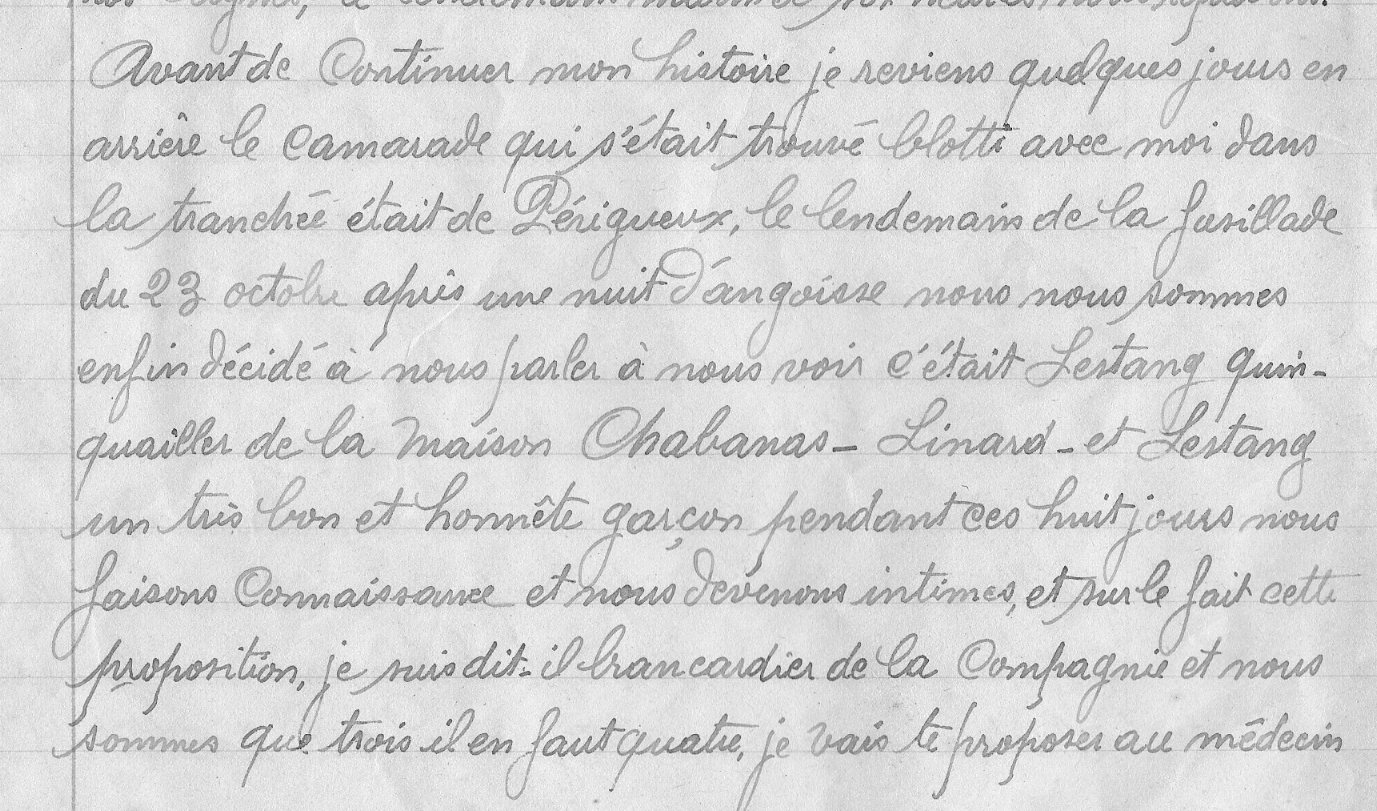 Avant de Continuer mon histoire je reviens quelques jours en
arrière le camarade qui s'était trouvé blotti avec moi dans
la tranchée était de Périgueux, le lendemain de la fusillade
du 23 octobre après une nuit d'angoisse nous nous sommes
enfin décidé à nous parler à nous voir c'était Lestang quin-
quailler de la Maison Chabanas - Linard - et Lestang
un très bon et honnête garçon pendant ces huit jours nous
faisons Connaissance et nous devenons intimes, et sur le fait cette
proposition, je suis dit-il brancardier de la Compagnie et nous
sommes que trois il en faut quatre, je vais te proposer au médecin